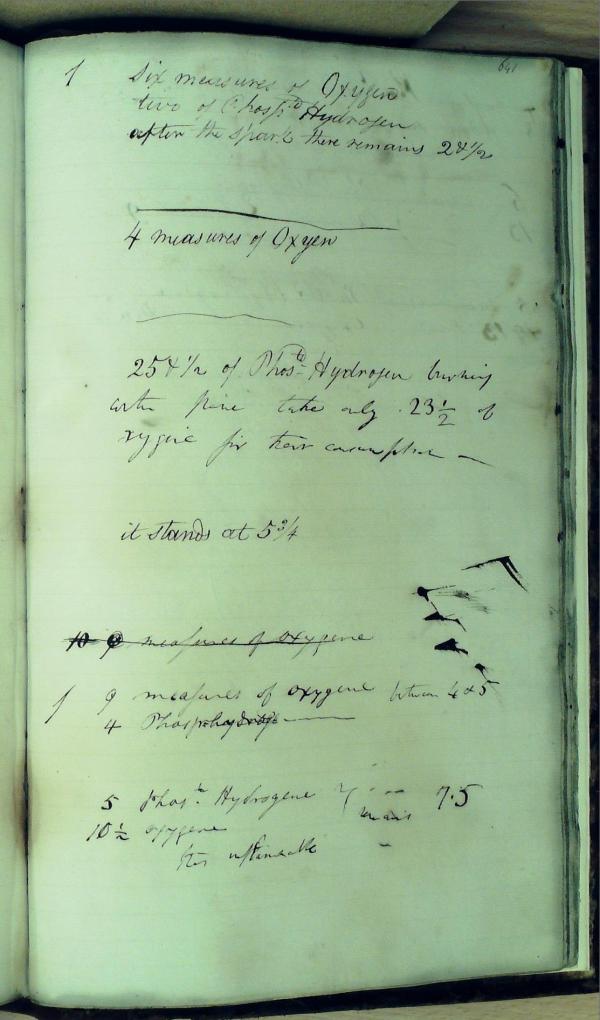 641
1 Six measures of Oxygen
two of Phosptd Hydrogen
after the spark there remains 2 & 1/2
4 measures of Oxyen
25 & 1/2 of Phostd Hydrogen burning
take only 23 1/2 of
oxygene for their consumption —
it stands at 5 3/4
10 9 measures of oxygene
1 9 measures of oxygene between 4 & 5
4 Phosphohydroge
5 phosd Hydrogene 7.5
10 1/2 oxygene